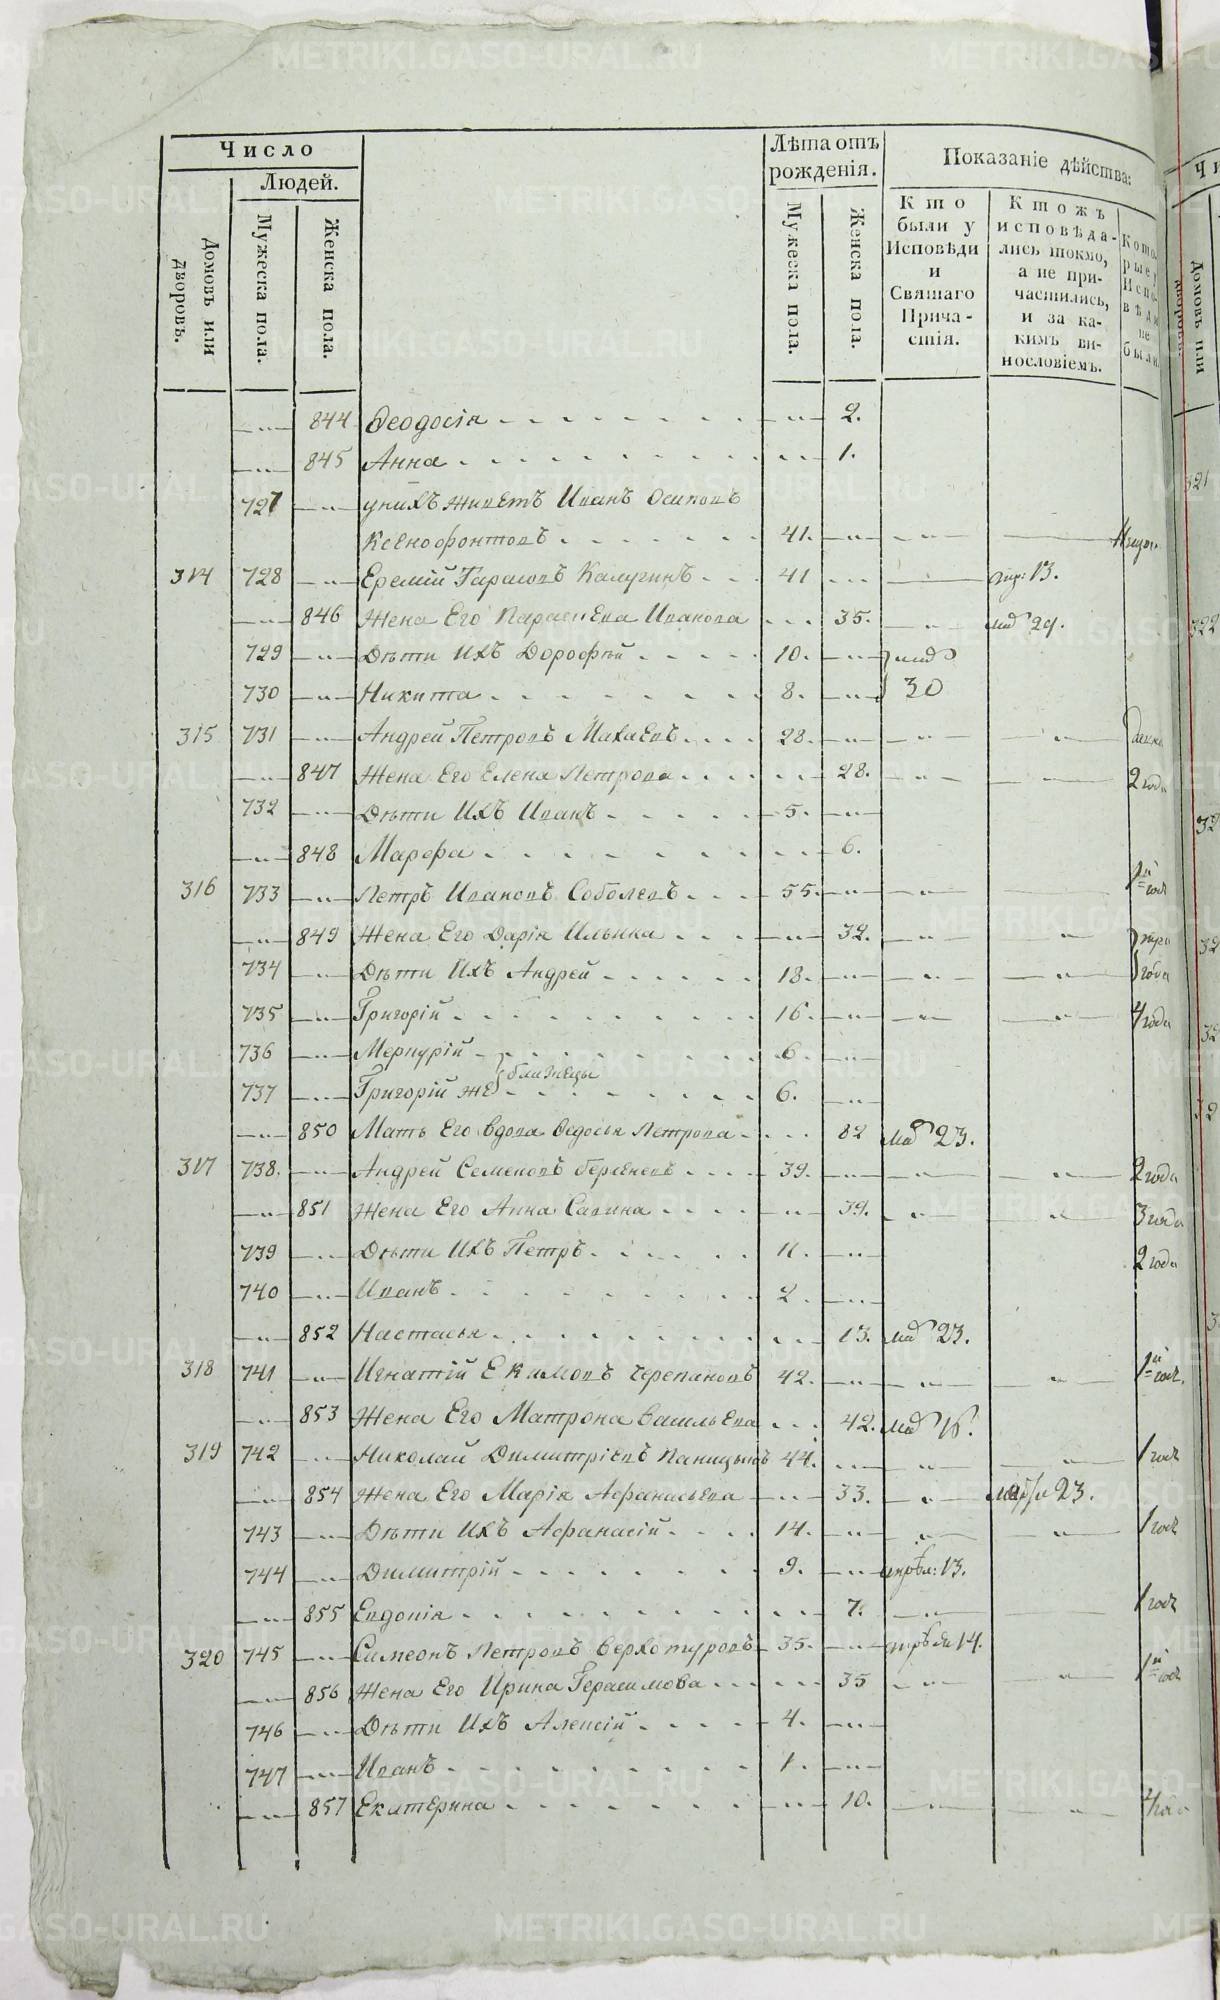 Число
Людей.
Домовъ или дворовъ.
Мужеска пола.
Женска пола.
Лѣта отъ рожденія.
Мужеска пола.
Женска пола.
Показаніе дѣйства:
Кто были у Исповѣди и Святаго Причастія.
Ктожъ исповѣдались токмо, а не причастились, и за какимъ винословіемъ.
Которые у Исповѣди не были
844 Ѳеодосія 2.
845 Анна 1.
727 у нихъ живетъ Иванъ Осиповъ
Ксенофонтовъ 41.
314 728 Еремій Тарасовъ Калугинъ 41 13.
846 Жена Его Параскева Иванова 35. 29.
729 Дѣти Ихъ Дороѳей 10.
730 Никита 8. 30
315 731 Андрей Петровъ Махаевъ 28.
847 Жена Его Елена Петрова 28. 2 года
732 Дѣти Ихъ Иванъ 5.
848 Марѳа 6.
316 733 Петръ Ивановъ Соболевъ 55. 1й год
849 Жена Его Дарія Ильина 32.
734 Дѣти Ихъ Андрей 18. года
735 Григорій 16. 4 года
736 Меркурій 6.
близнецы
737 Григорій же 6.
850 Мать Его вдова Ѳедосья Петрова 82 мар 23.
317 738. Андрей Семеновъ Берсеневъ 39. 2 года
851 Жена Его Анна Савина 39. 3 года
739 Дѣти Ихъ Петръ 11. 2 года
740 Иванъ 2.
852 Настасья 13. мар 23.
318 741 Игнатій Екимовъ Черепановъ 42. 1й год.
853 Жена Его Матрона Васильева 42. мар 16.
319 742 Николай Димитріевъ 44. 1 год
854 Жена Его Марія Аѳанасьева 33. марта 23.
743 Дѣти Ихъ Аѳанасій 14. 1 год
744 Димитрій 9. апрѣл: 13.
855 Евдокія 7. 1 год
320 745 Симеонъ Петровъ Верхотуровъ 35. апрѣля 14.
856 Жена Его Ирина Герасимова 35 1й год
746 Дѣти Ихъ Алексій 4.
747 Иванъ 1.
857 Екатерина 10.
METRIKI.GASO-URAL.RU